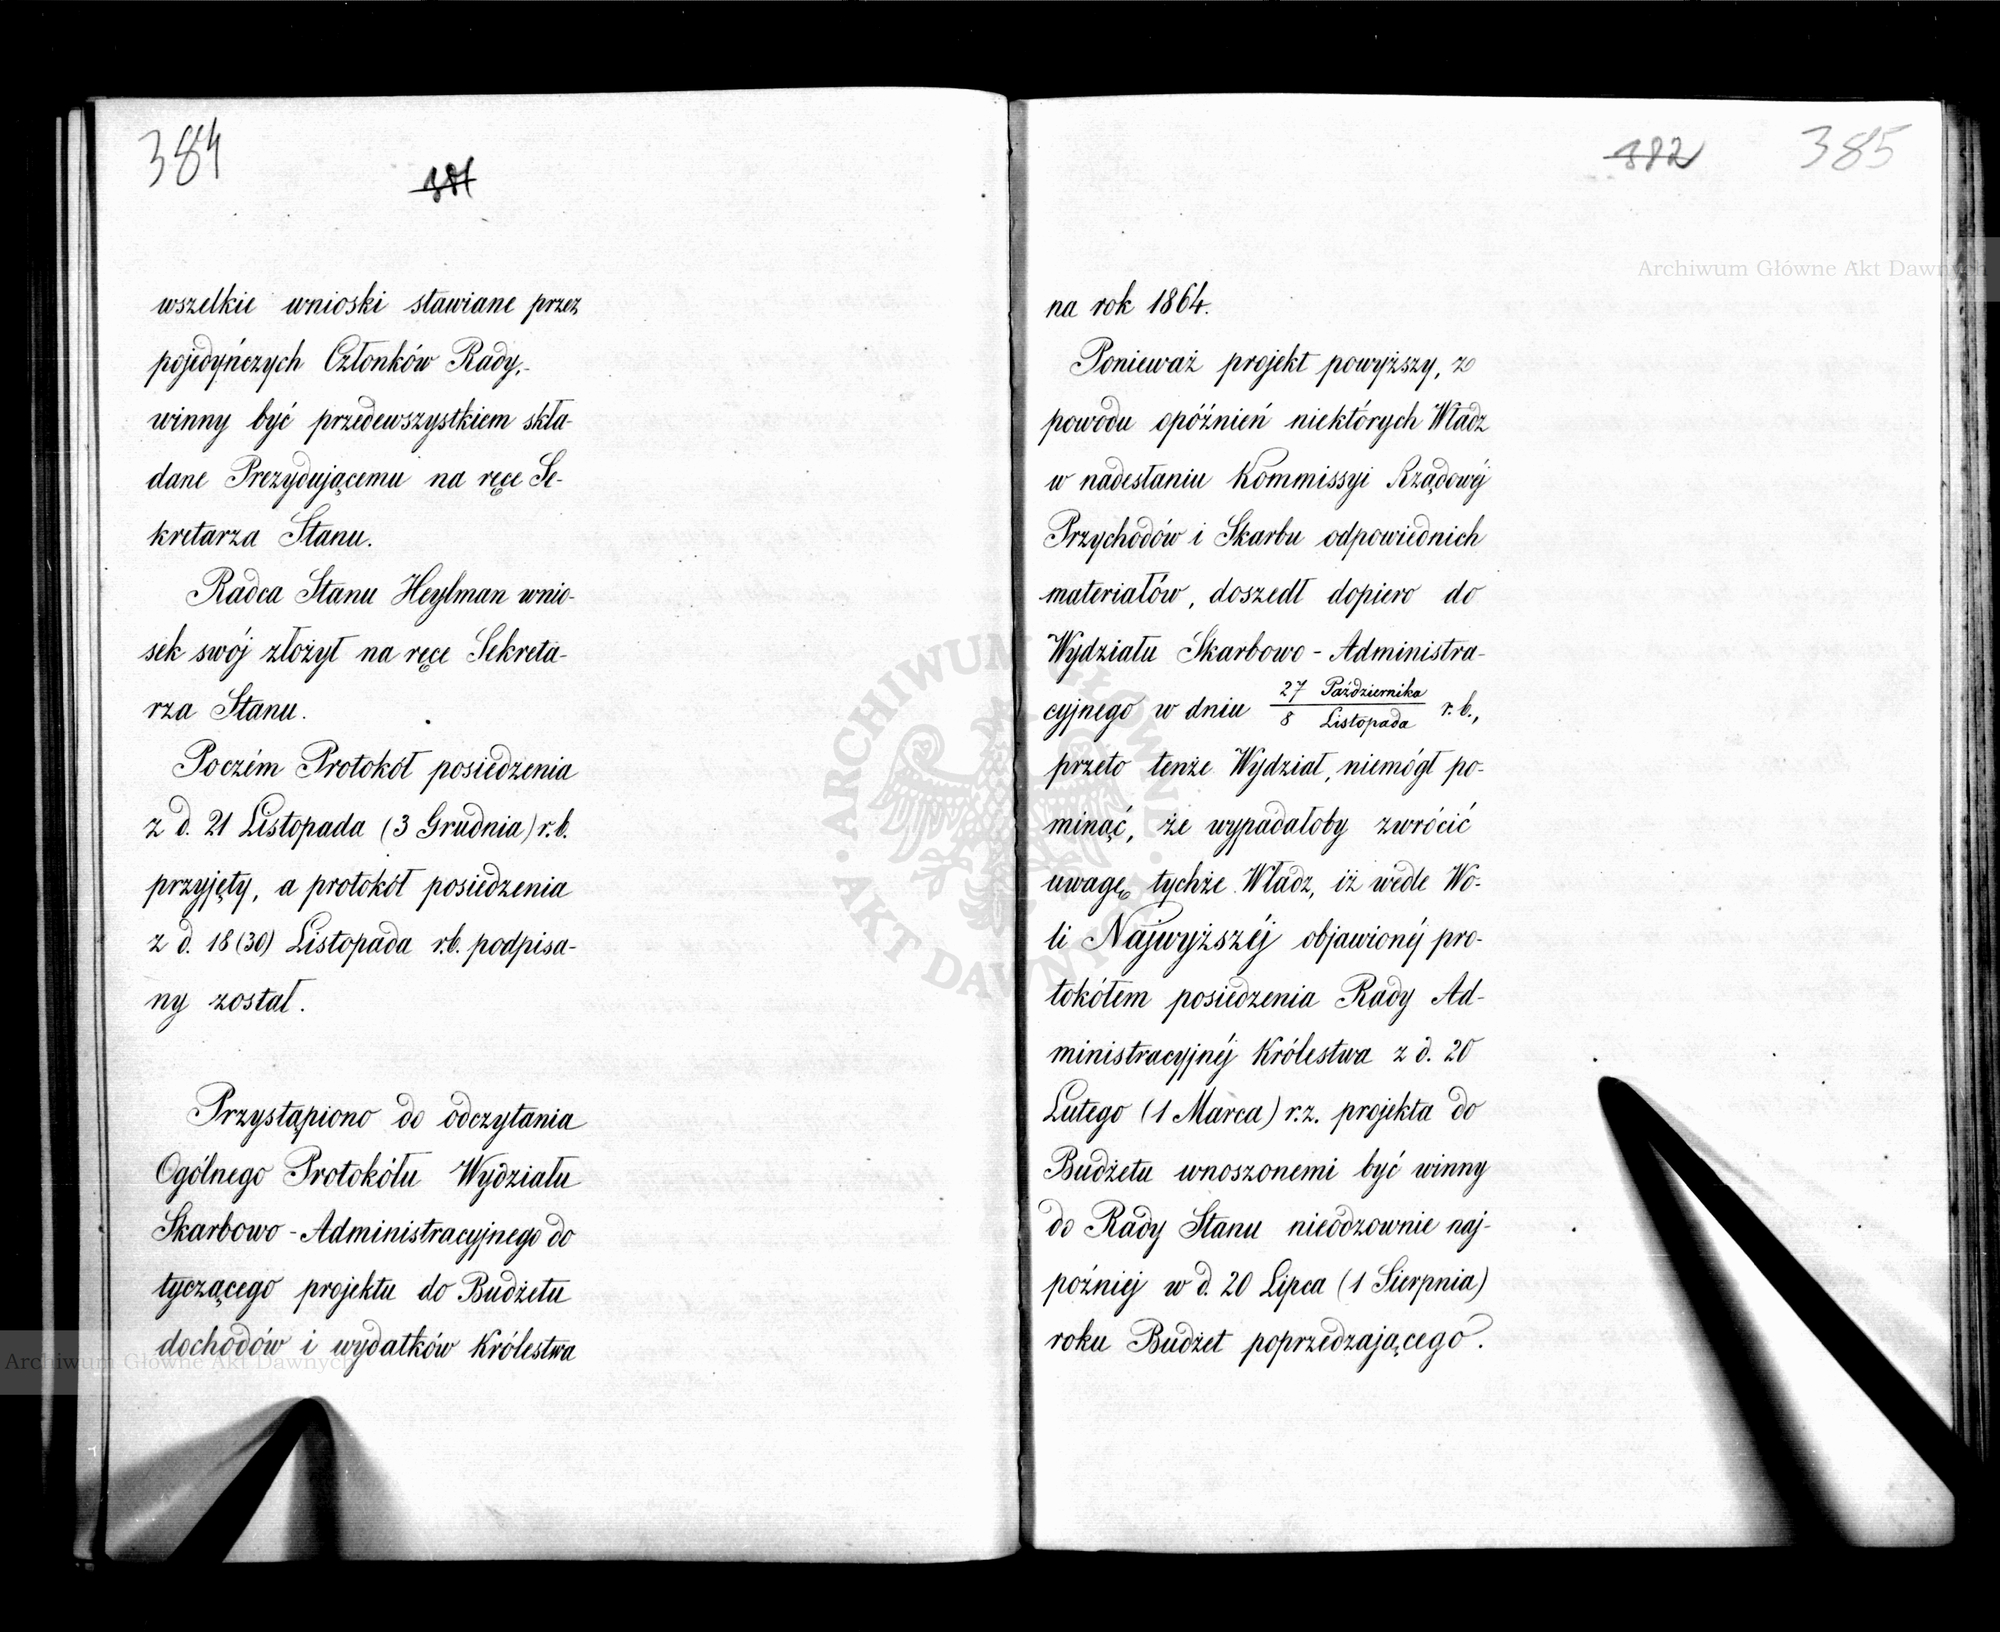 384
381
wszelkie wnioski stawiane przez
pojedyńczych Członków Rady,
winny być przedewszystkiem skła-
dane Prezydującemu na ręce Se-
kretarza Stanu.
Radca Stanu Heylman wnio-
sek swój złożył na ręce Sekreta-
rza Stanu.
Poczém Protokół posiedzenia
z d. 21 Listopada (3 Grudnia) r. b.
przyjęty, a protokół posiedzenia
z d. 18 (30) Listopada r.b. podpisa-
ny został.
Przystąpiono do odczytania
Ogólnego Protokółu Wydziału
Skarbowo-Administracyjnego do
tyczącego projektu do Budżetu
dochodów i wydatków Królestwa
382
385
na rok 1864.
Ponieważ projekt powyższy, z
powodu opóźnień niektórych Władz
w nadesłaniu Kommissyi Rządowéj
Przychodów i Skarbu odpowiednich
materiałów, doszedł dopiero do
Wydziału Skarbowo-Administra-
cyjnego w dniu 27 Października / 8 Listopada r. b.,
przeto tenże Wydział, niemógł po-
minąć, że wypadałoby zwrócić
uwagę tychże Władz, iż wedle Wo-
li Najwyższéj objawionéj pro-
tokółem posiedzenia Rady Ad-
ministracyjnéj Królestwa z d. 20
Lutego (1 Marca) r. z. projekta do
Budżetu wnoszonemi być winny
do Rady Stanu nieodzownie naj-
poźniéj w d. 20 Lipca (1 Sierpnia)
roku Budżet poprzedzającego.
Archiwum Główne Akt Dawnych
ARCHIWUM GŁÓWNE AKT DAWNYCH
Archiwum Główne Akt Dawnych